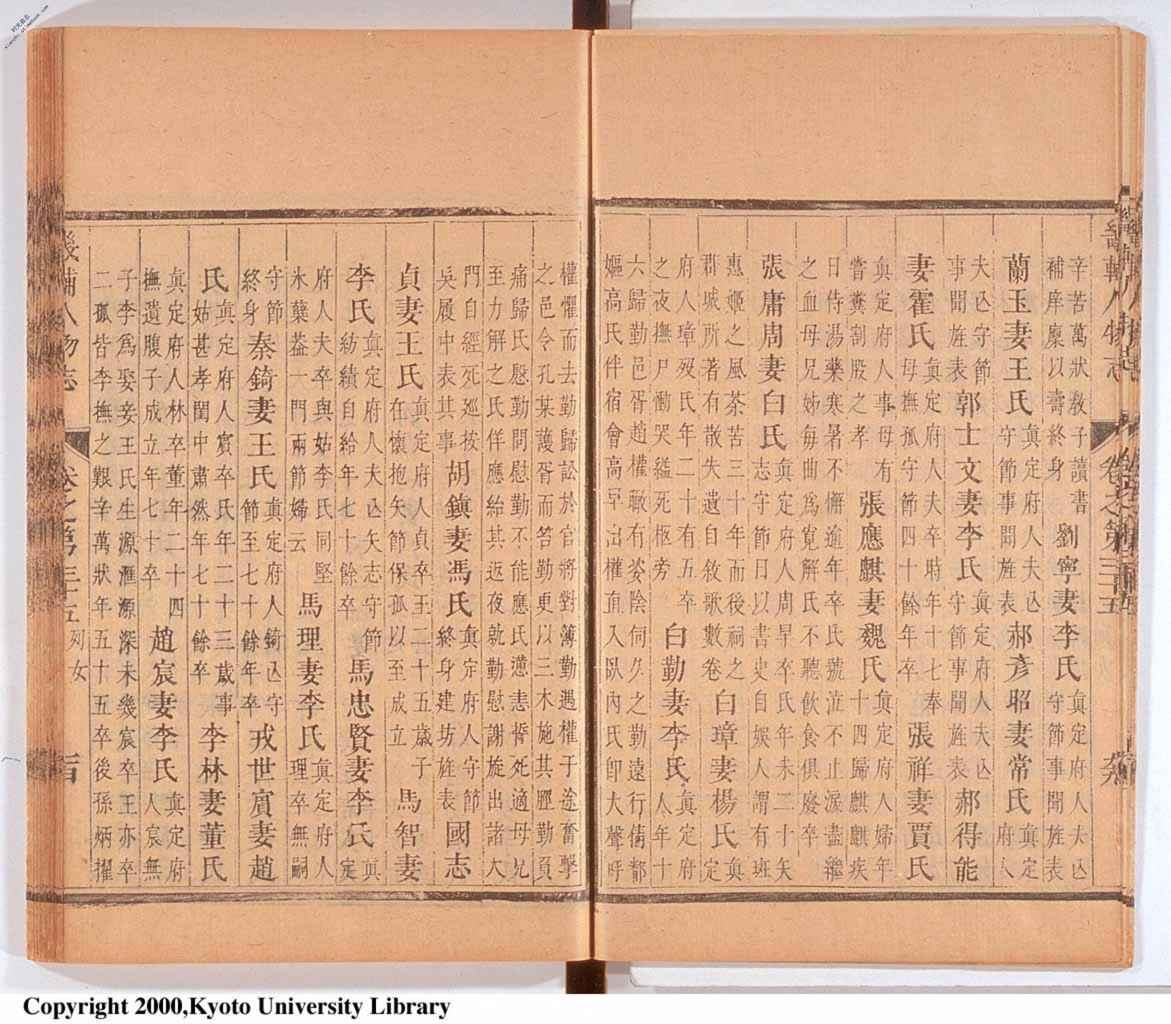 辛苦萬狀敎子讀書補庠廩以壽終身劉寧妻李氏真定府人夫亾守節事聞旌表
蘭玉妻王氏真定府人夫亾守節事聞旌表郝彥昭妻常氏真定府人
夫亾守節事聞旌表郭士文妻李氏真定府人夫亾守節事聞旌表郝得能
妻霍氏真定府人夫卒時年十七奉母撫孤守節四十餘年卒張祥妻賈氏
真定府人事母有嘗糞割股之孝張應麒妻魏氏真定府人婦年十四歸麒麒疾
日侍湯藥寒暑不懈逾年卒氏號泣不止淚盡繼之血母兄姊每曲爲寬解氏不聽飲食俱廢卒
張庸周妻白氏真定府人周早卒氏年未二十矢志守節日以書史自娛人謂有班
惠姬之風茶苦三十年而後祠之郡城所著有散失遺自敘歌數卷白璋妻楊氏真定
府人璋歿氏年二十有五卒之夜撫尸慟哭縊死柩旁白勤妻李氏真定府人年十
六歸勤邑胥趙權瞰有姿陰伺久之勤遠行倩鄰嫗高氏伴宿會高早出權直入臥內氏卽大聲呼
權懼而去勤歸訟於官將對簿勤遇權于途奮擊之邑令孔某護胥而笞勤更以三木施其脛勤負
痛歸氏慇勤問慰勤不能應氏懣恚誓死適母兄至力解之氏佯應紿其返夜乾勤慰謝旋出諸大
門自經死巡按吳履中表其事胡鎮妻馮氏真定府人守節終身建坊旌表國志
貞妻王氏真定府人貞卒王二十五歲子在懷抱矢節保孤以至成立馬智妻
李氏真定府人夫亾矢志守節紡績自給年七十餘卒馬忠賢妻李氏真定
府人夫卒與姑李氏同堅氷蘗葢一門兩節婦云馬理妻李氏真定府人理卒無嗣
守節終身秦錡妻王氏真定府人錡亾守節至七十餘年卒戎世賔妻趙
氏真定府人賔卒氏年二十三歲事姑甚孝閨中肅然年七十餘卒李林妻董氏
真定府人林卒董年二十四撫遺腹子成立年七十卒趙宸妻李氏真定府人宸無
子李爲娶妾王氏生源滙源深未幾宸卒王亦卒二孤皆李撫之艱辛萬狀年五十五卒後孫炳擢
畿輔人物志 卷之第三十五 列女
Copyright 2000,Kyoto University Library